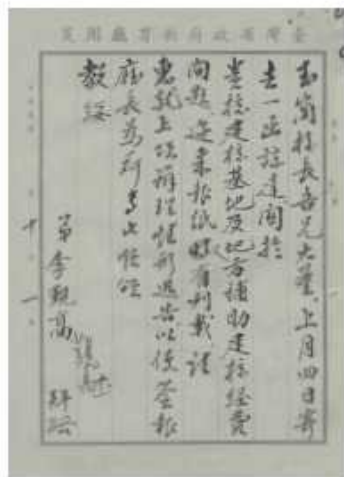 臺灣省政府教育廳用箋
玉崗校長吾兄大鑒上月四日寄
去一函諒達關於
貴校建校基地及地方補助建校經費
問題近來報紙時有刊載請
惠就上項辦理情形迅告以便簽報
廳長為荷專此敬頌
教綏
弟李觀高
拜啟
十
一